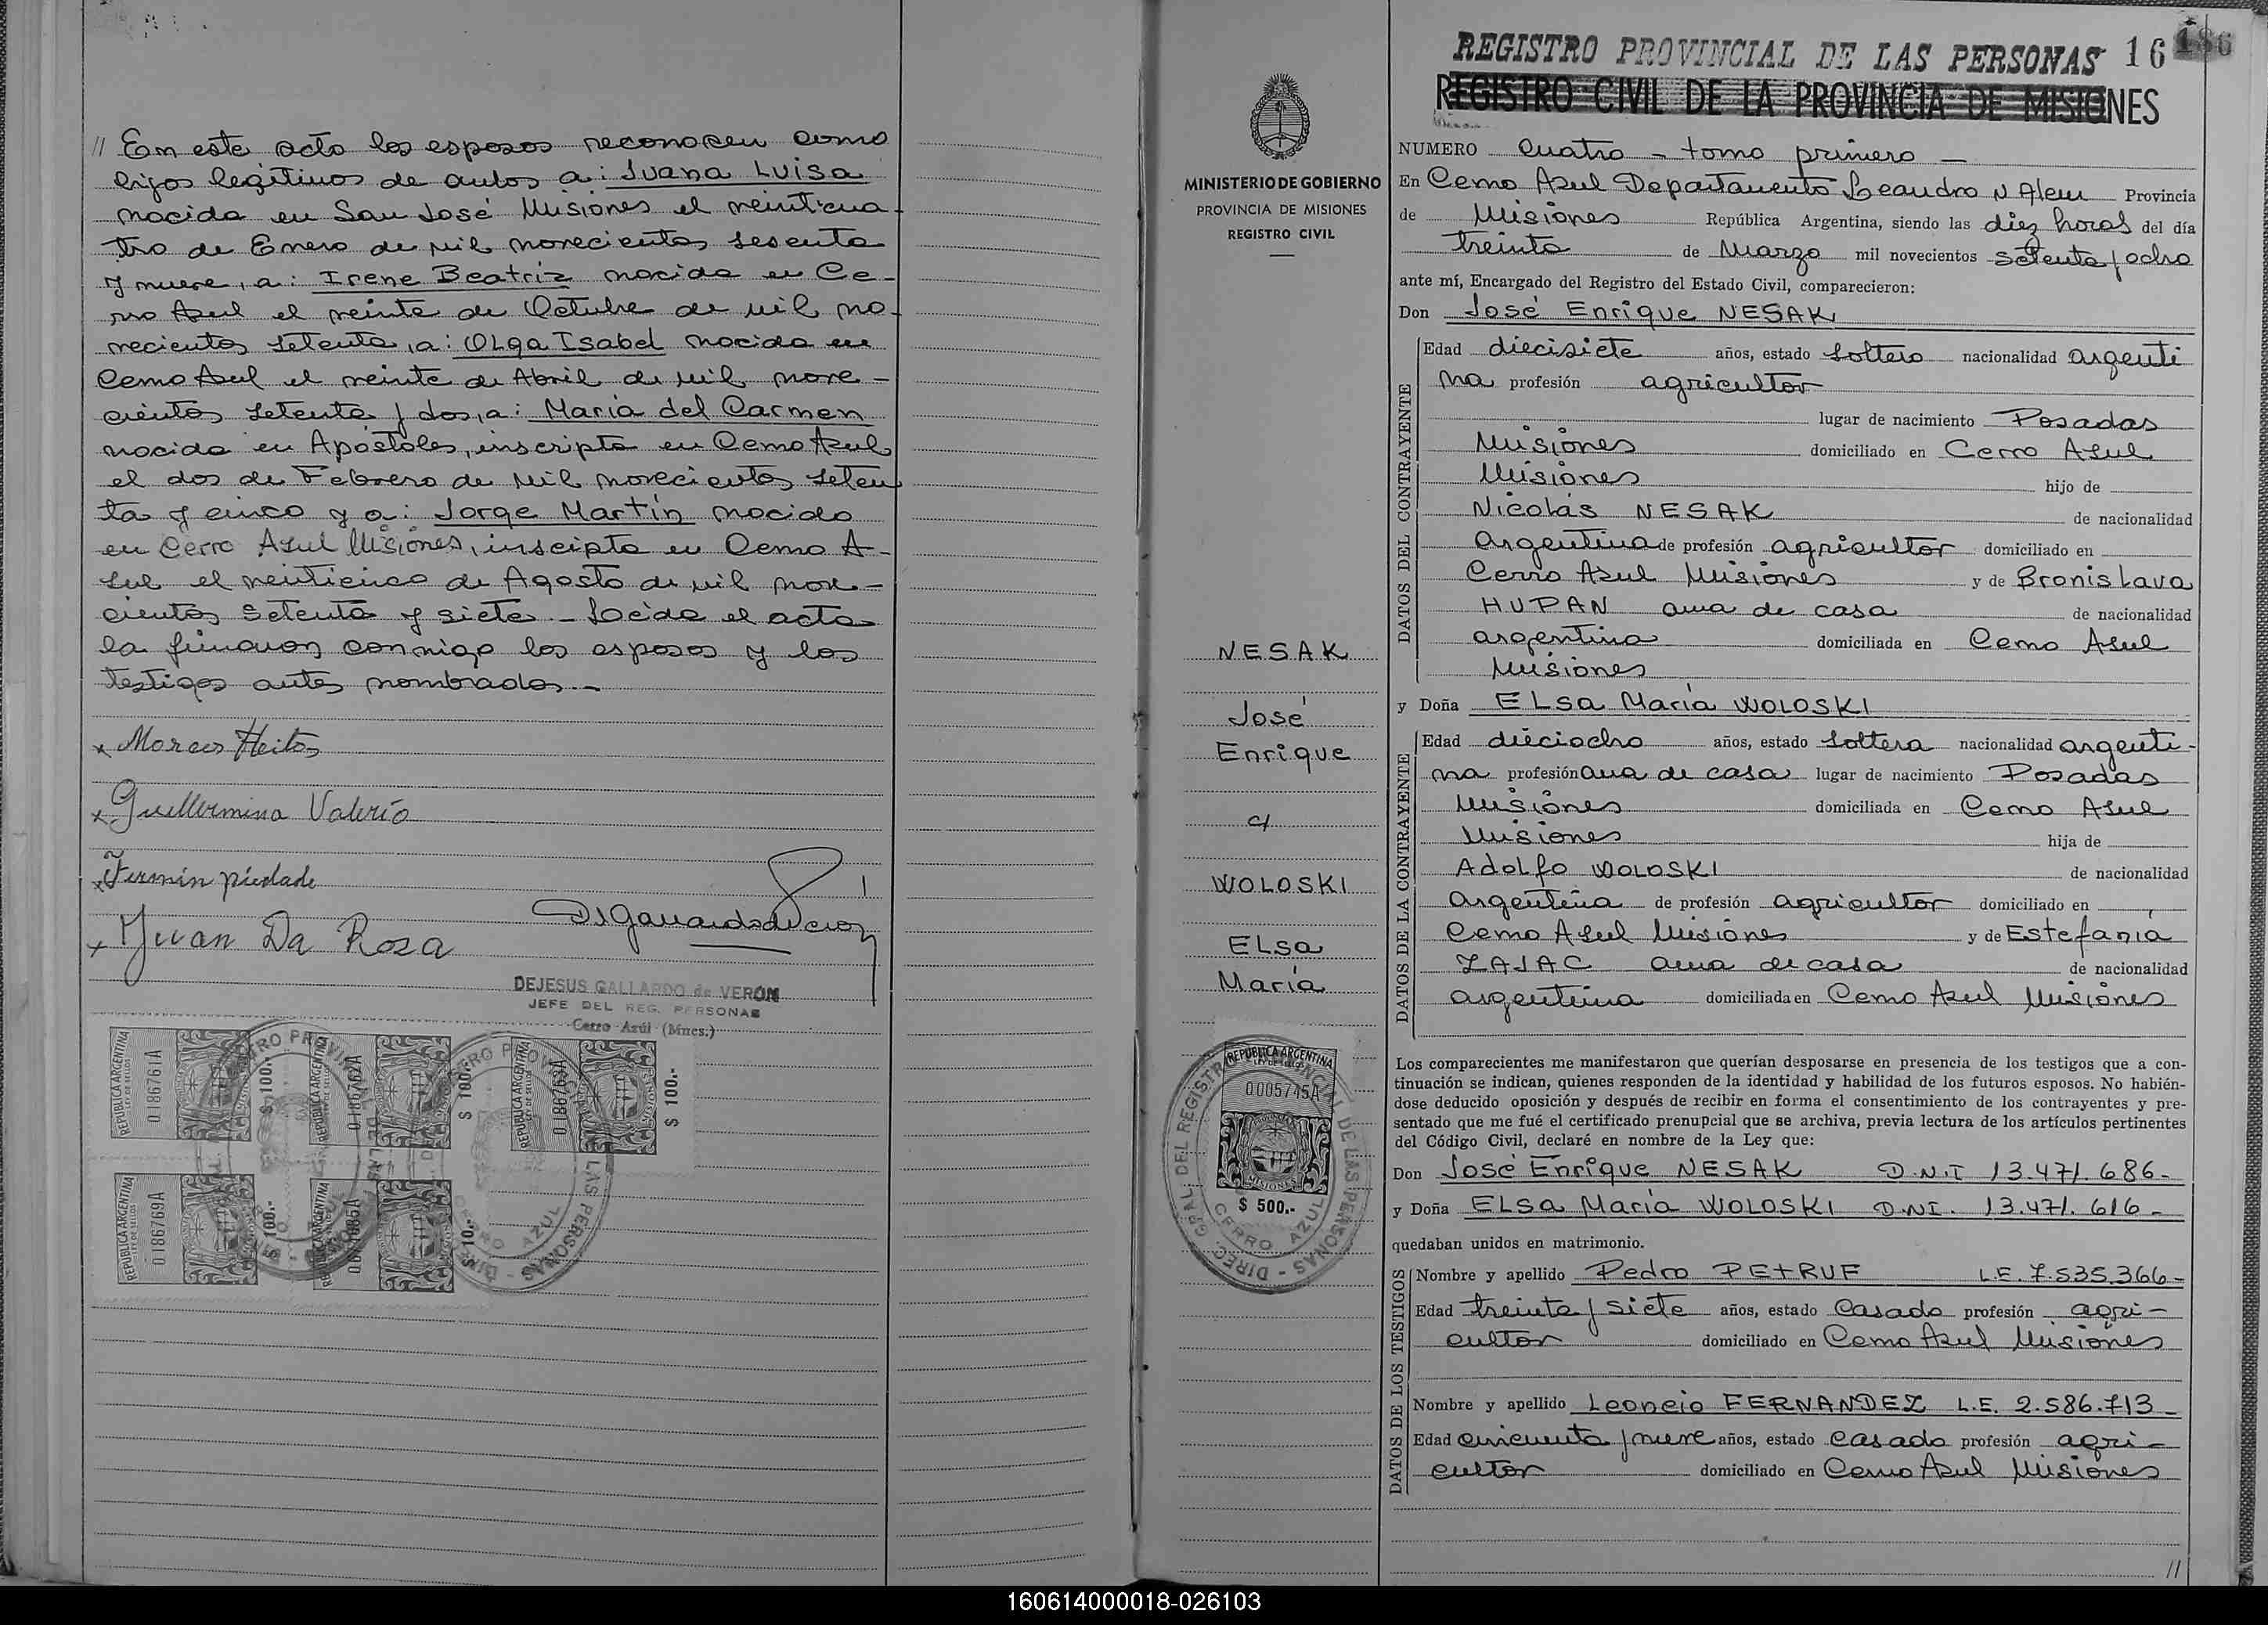 // En este acto los esposos reconocen como
hijos legítimos de ambos a: Juana Luisa
nacida en San José Misiones el veinticua-
tro de Enero de mil novecientos sesenta
y nueve, a: Irene Beatriz nacida en Ce-
rro Azul el veinte de Octubre de mil no-
vecientos setenta, a: Olga Isabel nacida en
Cerro Azul el veinte de Abril de mil nove-
cientos setenta y dos, a: María del Carmen
nacida en Apóstoles, inscripta en Cerro Azul
el dos de Febrero de mil novecientos seten
ta y cinco y a: Jorge Martín nacido
en Cerro Azul Misiones, inscipto en Cerro A-
zul el veinticinco de Agosto de mil nove-
cientos setenta y siete - Leída el acta
la firmaron conmigo los esposos y los
testigos antes nombrados.-
x Morces Heitos
x Guillermina Valerio
x Fermín piedade
x Juan Da Rosa
DEJESUS GALLARDO de VERON
JEFE DEL REG. PERSONAS
Cerro Azúl (Mnes.)
REPUBLICA ARGENTINA
LEY DE SELLOS
0186761A
$ 100.-
REPUBLICA ARGENTINA
LEY DE SELLOS
0186762A
$ 100.-
REPUBLICA ARGENTINA
LEY DE SELLOS
0186763A
$ 100.-
REPUBLICA ARGENTINA
LEY DE SELLOS
0186769A
$ 100.-
REPUBLICA ARGENTINA
$ 10.-
MINISTERIO DE GOBIERNO
PROVINCIA DE MISIONES
REGISTRO CIVIL
NESAK
José
Enrique
c/
WOLOSKI
ELsa
María
REPUBLICA ARGENTINA
LEY DE SELLOS
0005745A
MISIONES
$ 500.-
DIREC. GRAL. DEL REGISTRO PROVINCIAL DE LAS PERSONAS -
CERRO AZUL
REGISTRO PROVINCIAL DE LAS PERSONAS 16 186
REGISTRO CIVIL DE LA PROVINCIA DE MISIONES
NUMERO Cuatro - tomo primero -
En Cerro Azul Departamento Leandro N Alem Provincia
de Misiones República Argentina, siendo las diez horas del día
treinta de Marzo mil novecientos setenta y ocho
ante mí, Encargado del Registro del Estado Civil, comparecieron:
Don José Enrique NESAK
DATOS DEL CONTRAYENTE
Edad diecisiete años, estado soltero nacionalidad argenti
na profesión agricultor
lugar de nacimiento Posadas
Misiones domiciliado en Cerro Azul
Misiones hijo de
Nicolás NESAK de nacionalidad
Argentina de profesión agricultor domiciliado en
Cerro Azul Misiones y de Bronislava
HUPAN ama de casa de nacionalidad
argentina domiciliada en Cerro Azul
Misiones
y Doña ELsa María WOLOSKI
DATOS DE LA CONTRAYENTE
Edad dieciocho años, estado soltera nacionalidad argenti-
na profesión ama de casa lugar de nacimiento Posadas
Misiones domiciliada en Cerro Azul
Misiones hija de
Adolfo WOLOSKI de nacionalidad
Argentina de profesión agricultor domiciliado en
Cerro Azul Misiones y de Estefanía
ZAJAC ama de casa de nacionalidad
argentina domiciliada en Cerro Azul Misiones
Los comparecientes me manifestaron que querían desposarse en presencia de los testigos que a con-
tinuación se indican, quienes responden de la identidad y habilidad de los futuros esposos. No habién-
dose deducido oposición y después de recibir en forma el consentimiento de los contrayentes y pre-
sentado que me fué el certificado prenupcial que se archiva, previa lectura de los artículos pertinentes
del Código Civil, declaré en nombre de la Ley que:
Don José Enrique NESAK D.N.I 13.471.686-
y Doña ELsa María WOLOSKI D.N.I. 13.471.616-
quedaban unidos en matrimonio.
DATOS DE LOS TESTIGOS
Nombre y apellido Pedro PETRUF L.E. 7.535.366-
Edad treinta y siete años, estado Casado profesión agri-
cultor domiciliado en Cerro Azul Misiones
Nombre y apellido Leoncio FERNANDEZ L.E. 2.586.713-
Edad cincuenta y nueve años, estado casado profesión agri-
cultor domiciliado en Cerro Azul Misiones
//
160614000018-026103